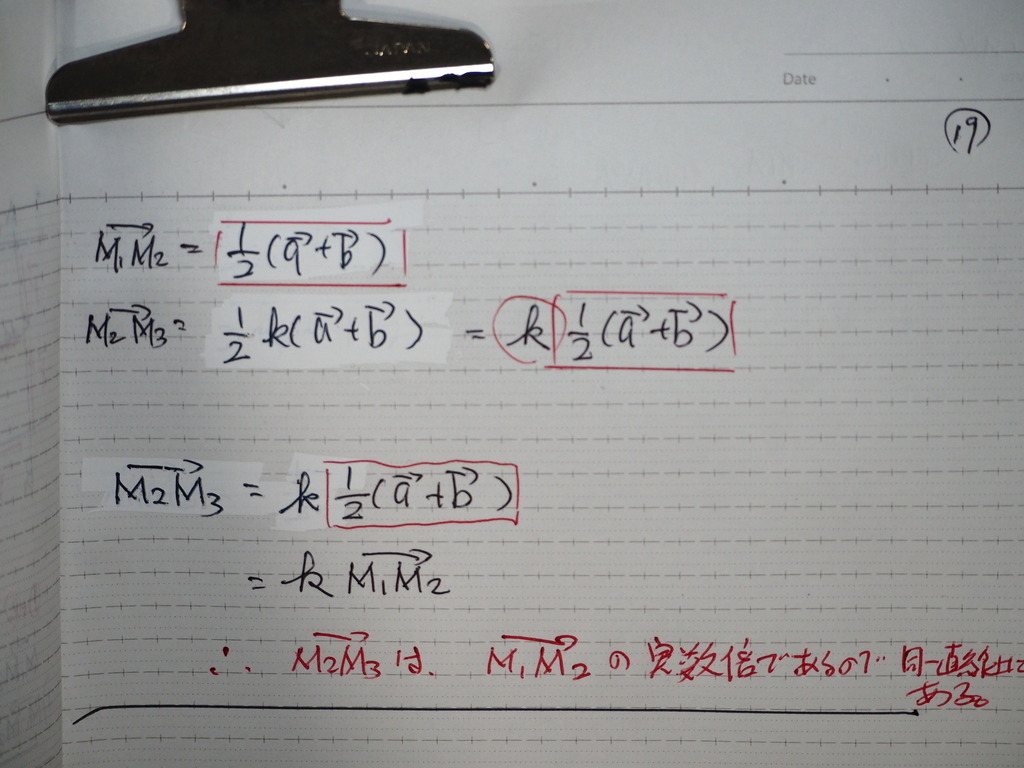 JAPAN
Date
⑲
$\overrightarrow{M_1M_2} = \frac{1}{2}(\vec{a}+\vec{b})$
$\overrightarrow{M_2M_3} = \frac{1}{2}k(\vec{a}+\vec{b}) = k\frac{1}{2}(\vec{a}+\vec{b})$
$\overrightarrow{M_2M_3} = k\frac{1}{2}(\vec{a}+\vec{b})$
$= k\overrightarrow{M_1M_2}$
∴ $\overrightarrow{M_2M_3}$ は、 $\overrightarrow{M_1M_2}$ の実数倍であるので 同一直線上に
ある。